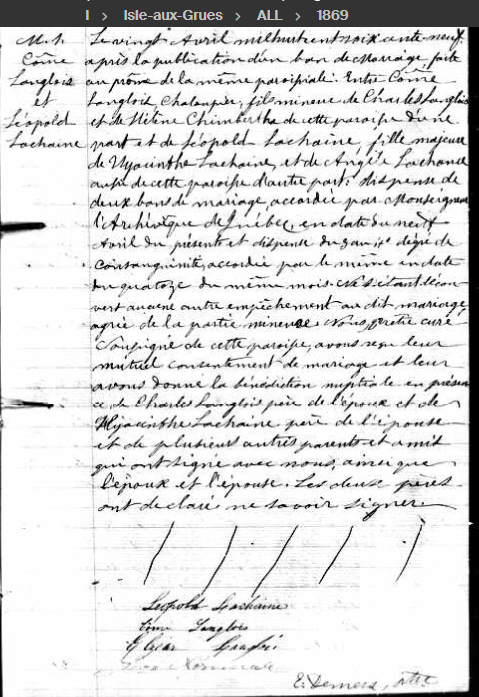 I > Isle-aux-Grues > ALL > 1869
M. 1.
Côme
Langlois
et
Léopold
Lachaine
Le vingt Avril mil huit cent soixante-neuf
après la publication d'un ban de Mariage, faite
au prône de la même paroisse. Entre Côme
Langlois, Chaloupier, fils mineur de Charles Langlois
et de Hélène Chimbertha de cette paroisse d'une
part et de Léopold Lachaine, fille majeure
de Hyacinthe Lachaine, et de Angèle Lachance
aussi de cette paroisse d'autre part: dispense de
deux bans de mariage, accordée par Monseigneur
l'Archévêque de Québec, en date du neuf
Avril du présent et dispense du degré de
Consanguinité, accordée par le même en date
du quatorze du même mois. Ne s'étant décou-
vert aucune autre empêchement au dit mariage,
agrée de la partie mineure. Nous prêtre curé
Soussigné de cette paroisse, avons reçu leur
mutuel consentement de mariage et leur
avons donné la bénédiction nuptiale en présen-
ce de Charles Langlois père de l'époux et de
Hyacinthe Lachaine père de l'épouse
et de plusieurs autres parents et amis
qui ont signé avec nous, ainsi que
l'époux et l'épouse. Les deux pères
ont déclaré ne savoir signer.
Léopold Lachaine
Côme Langlois
E. Demers, ptre